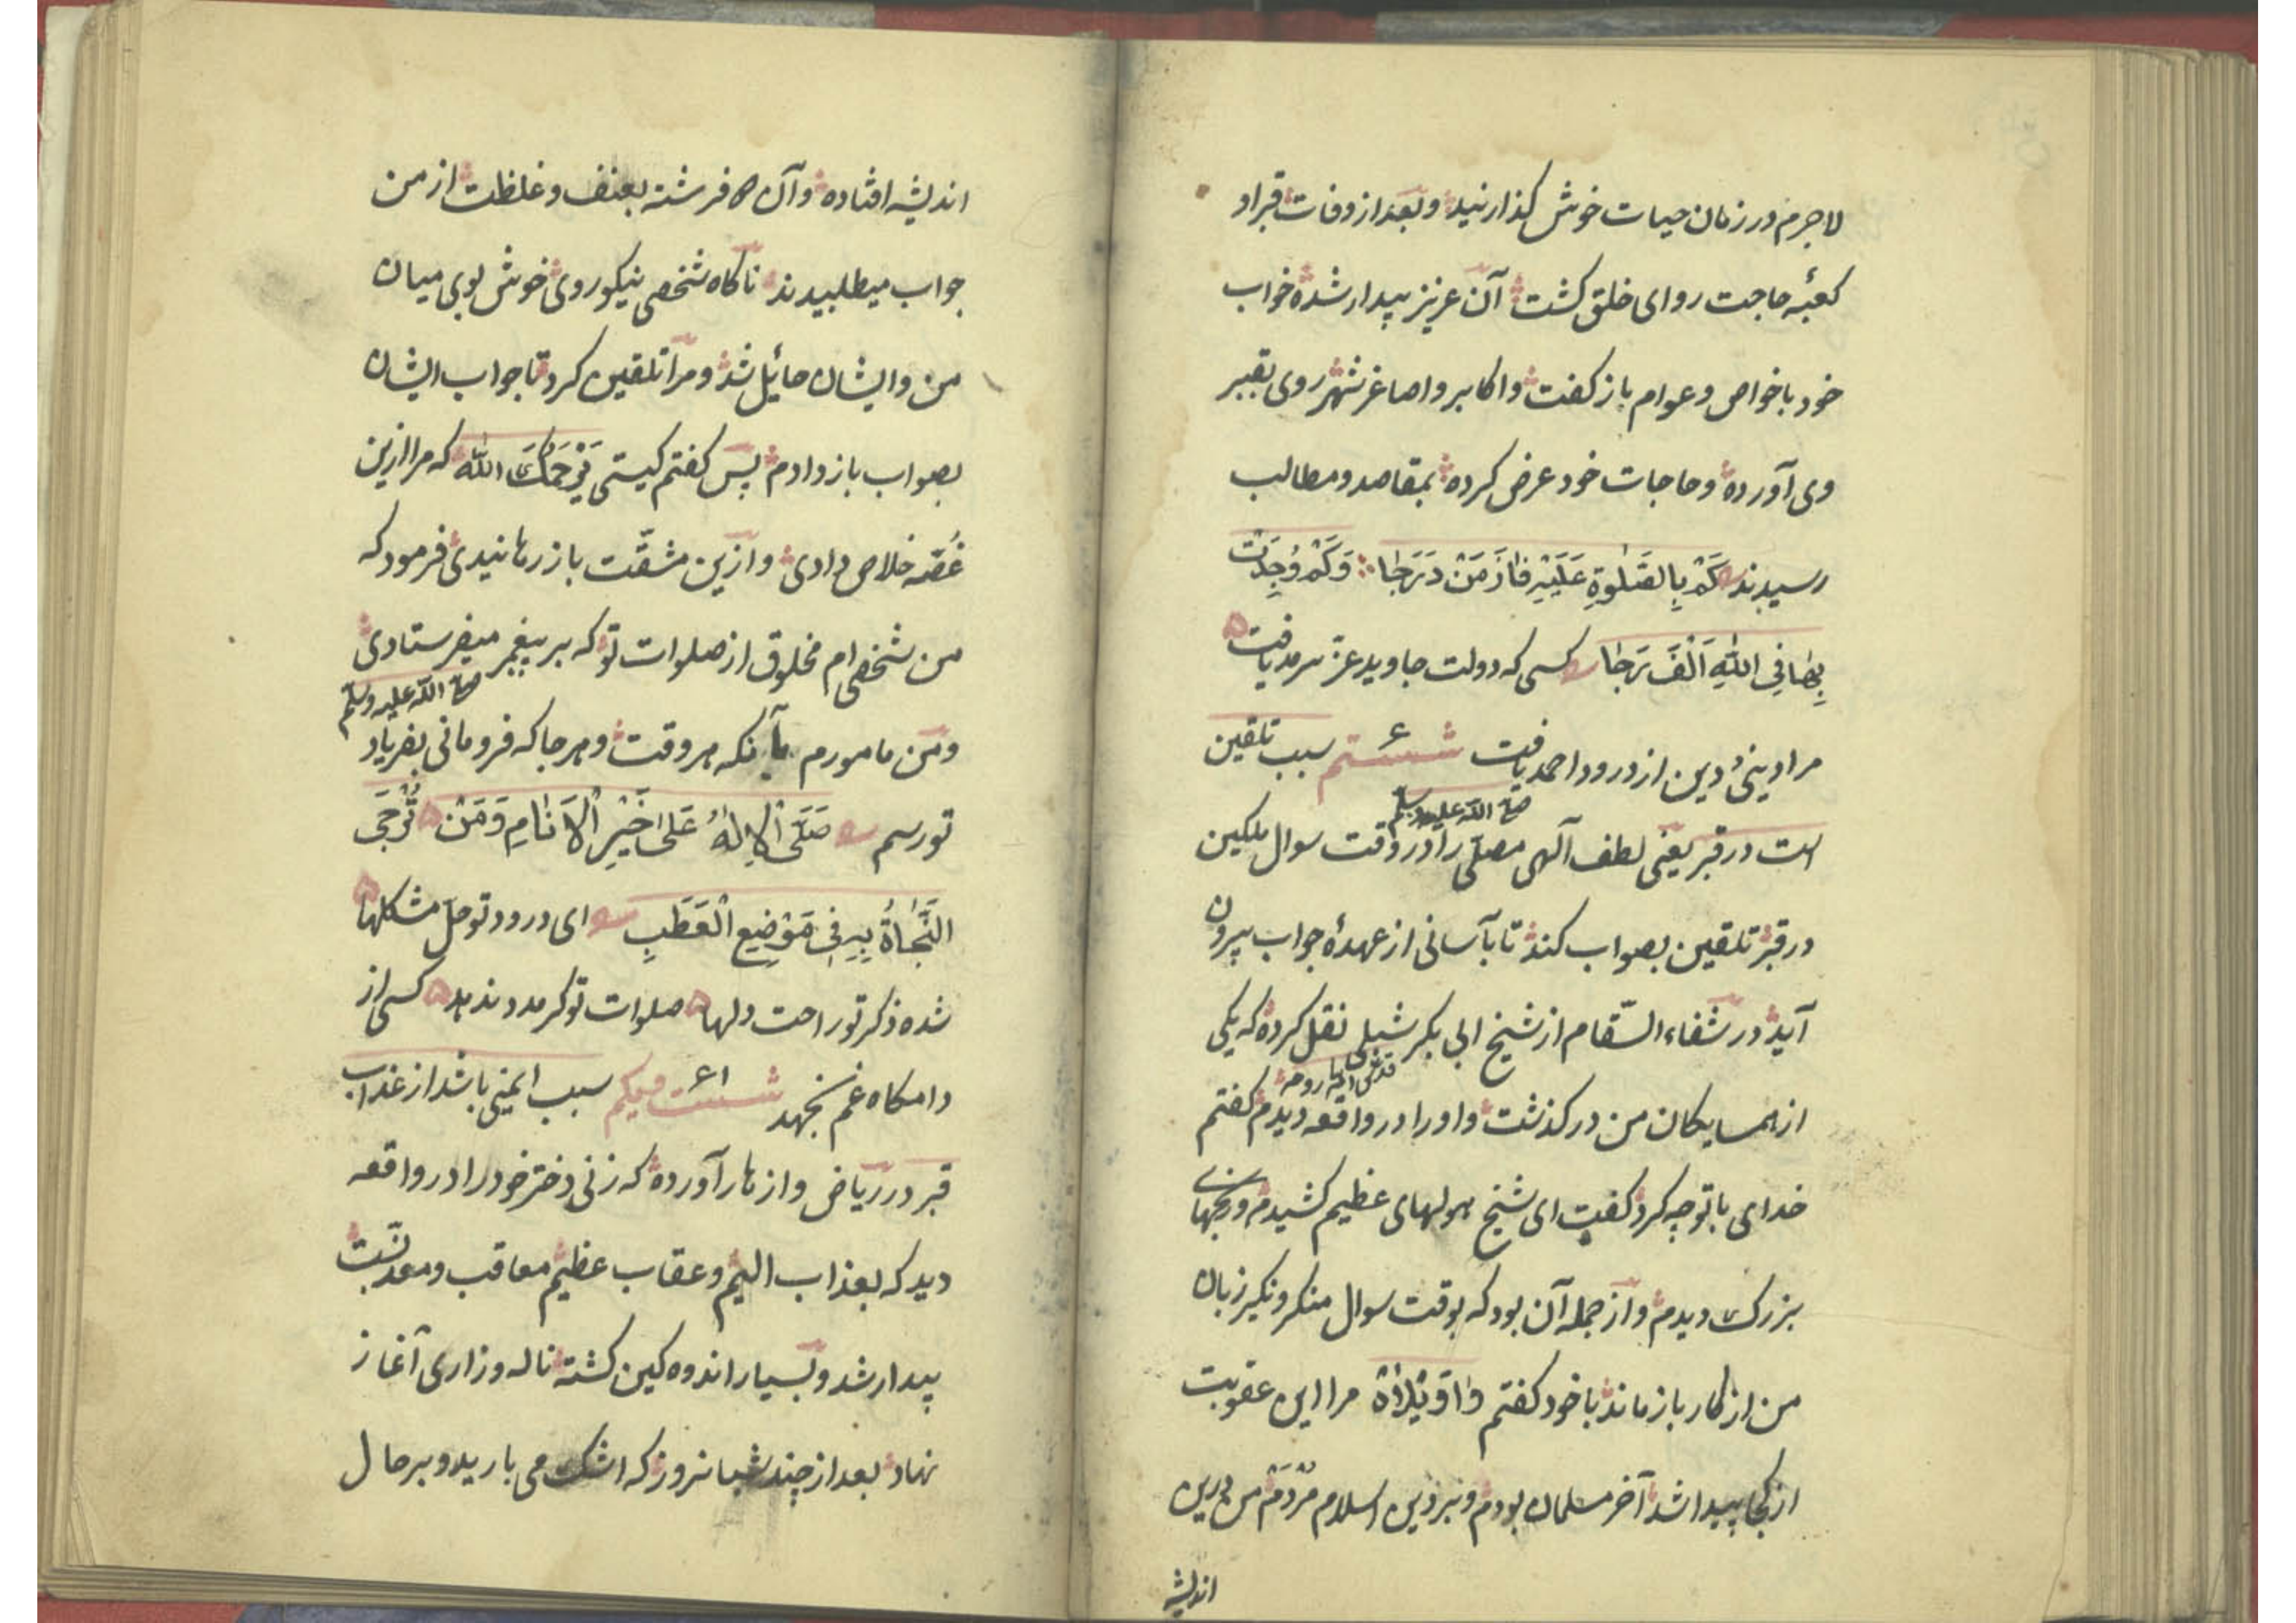 لاجرم در زمان حیات خوش گذارنید و بعد از وفات قبر او
کعبهٔ حاجت روای خلق گشت آن عزیز بیدار شده خواب
خود با خواص و عوام باز گفت و اکابر و اصاغر شهر روی بقبر
وی آورده و حاجات خود عرض کرده بمقاصد و مطالب
رسیدند کَمْ بِالصَّلٰوةِ عَلَیْهِ فَازَ مَنْ دَرَجَا وَکَمْ وُجِدَتْ
بِهَا فِی اللّٰهِ اَلْفَ رَجَا کسی که دولت جاوید عز سرمد یافت
مراد دنیی و دین از درود احمد یافت ششتم ۶۰ سبب تلقین
صلی الله علیه وسلم
است در قبر یعنی لطف آلهی مصلّی را در وقت سوال ملکین
در قبر تلقین بصواب کند تا بآسانی از عهدهٔ جواب بیرون
آید در شفاء السّقام از شیخ ابی بکر شبلی نقل کرده که یکی
قدس الله روحه
از همسایکان من در کذشت و او را در واقعه دیدم کفتم
خدای با تو چه کرد کفت ای شیخ هولهای عظیم کشیدم و رنجهای
بزرک دیدم و از جمله آن بود که بوقت سوال منکر و نکیر زبان
من از کار باز ماند با خود کفتم وٰا وَیْلاٰهْ مرا این عقوبت
از کجا پیدا شد آخر مسلمان بودم و بر دین اسلام مُرْدَمْ من درین
اندیشه
اندیشه افتاده و آن فرشته بعنف و غلظت از من
جواب میطلبیدند ناکاه شخصی نیکو روی خوش بوی میان
من و ایشان حائل شد و مرا تلقین کرد تا جواب ایشان
بصواب باز دادم پس کفتم کیستی یَرْحَمُکَ اللّٰهُ که مرا ازین
غُصّه خلاص دادی و ازین مشقّت باز رهانیدی فرمود که
من شخصی ام مخلوق از صلوات تو که بر پیغمبر میفرستادی
صلی الله علیه وسلم
و من مامورم بآنکه هر وقت و هر جا که فرو مانی بفریاد
تو رسم صَلَّی الْاِلٰهُ عَلیٰ خَیْرِ الْاَنٰامِ وَمَنْ تُرْجَی
النَّجٰاةُ بِهِ فِی مَوْضِعِ الْعَطَبِ ای درود تو حلّ مشکلها
شده ذکر تو راحت دلها صلوات تو کر مدد ندهد کسی از
دامکاه غم نجهد شست ویکم ۶۱ سبب ایمنی باشد از عذاب
قبر در ریاض و ازهار آورده که زنی دختر خود را در واقعه
دید که بعذاب الیم و عقاب عظیم معاقب و معذّبست
بیدار شد و بسیار اندوه کین کشته ناله و زاری آغاز
نهاد بعد از چند شبانروز که اشک می بارید و بر حال